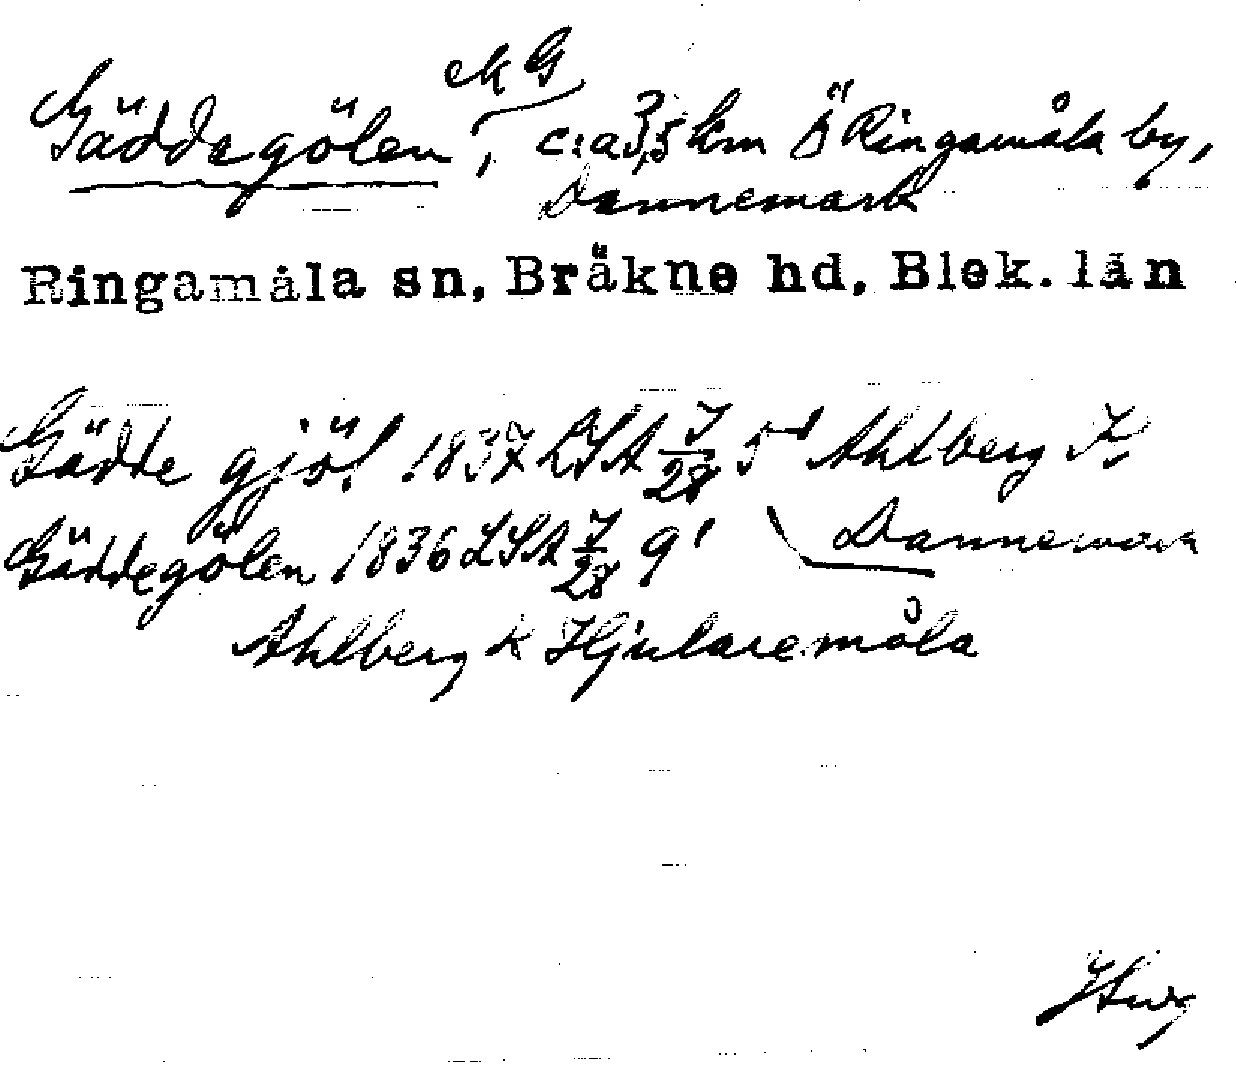 ek G
Gäddegölen, c:a 3,5 km Ö Ringamåla by,
Dannemark
Ringamåla sn, Bräkne hd, Blek. län
Gädde gjöl 1837 LSA J/28 5¹ Ahlberg K
Gäddegölen 1836 LSA J/28 9¹ Dannemark
Ahlberg k Hjularemåla